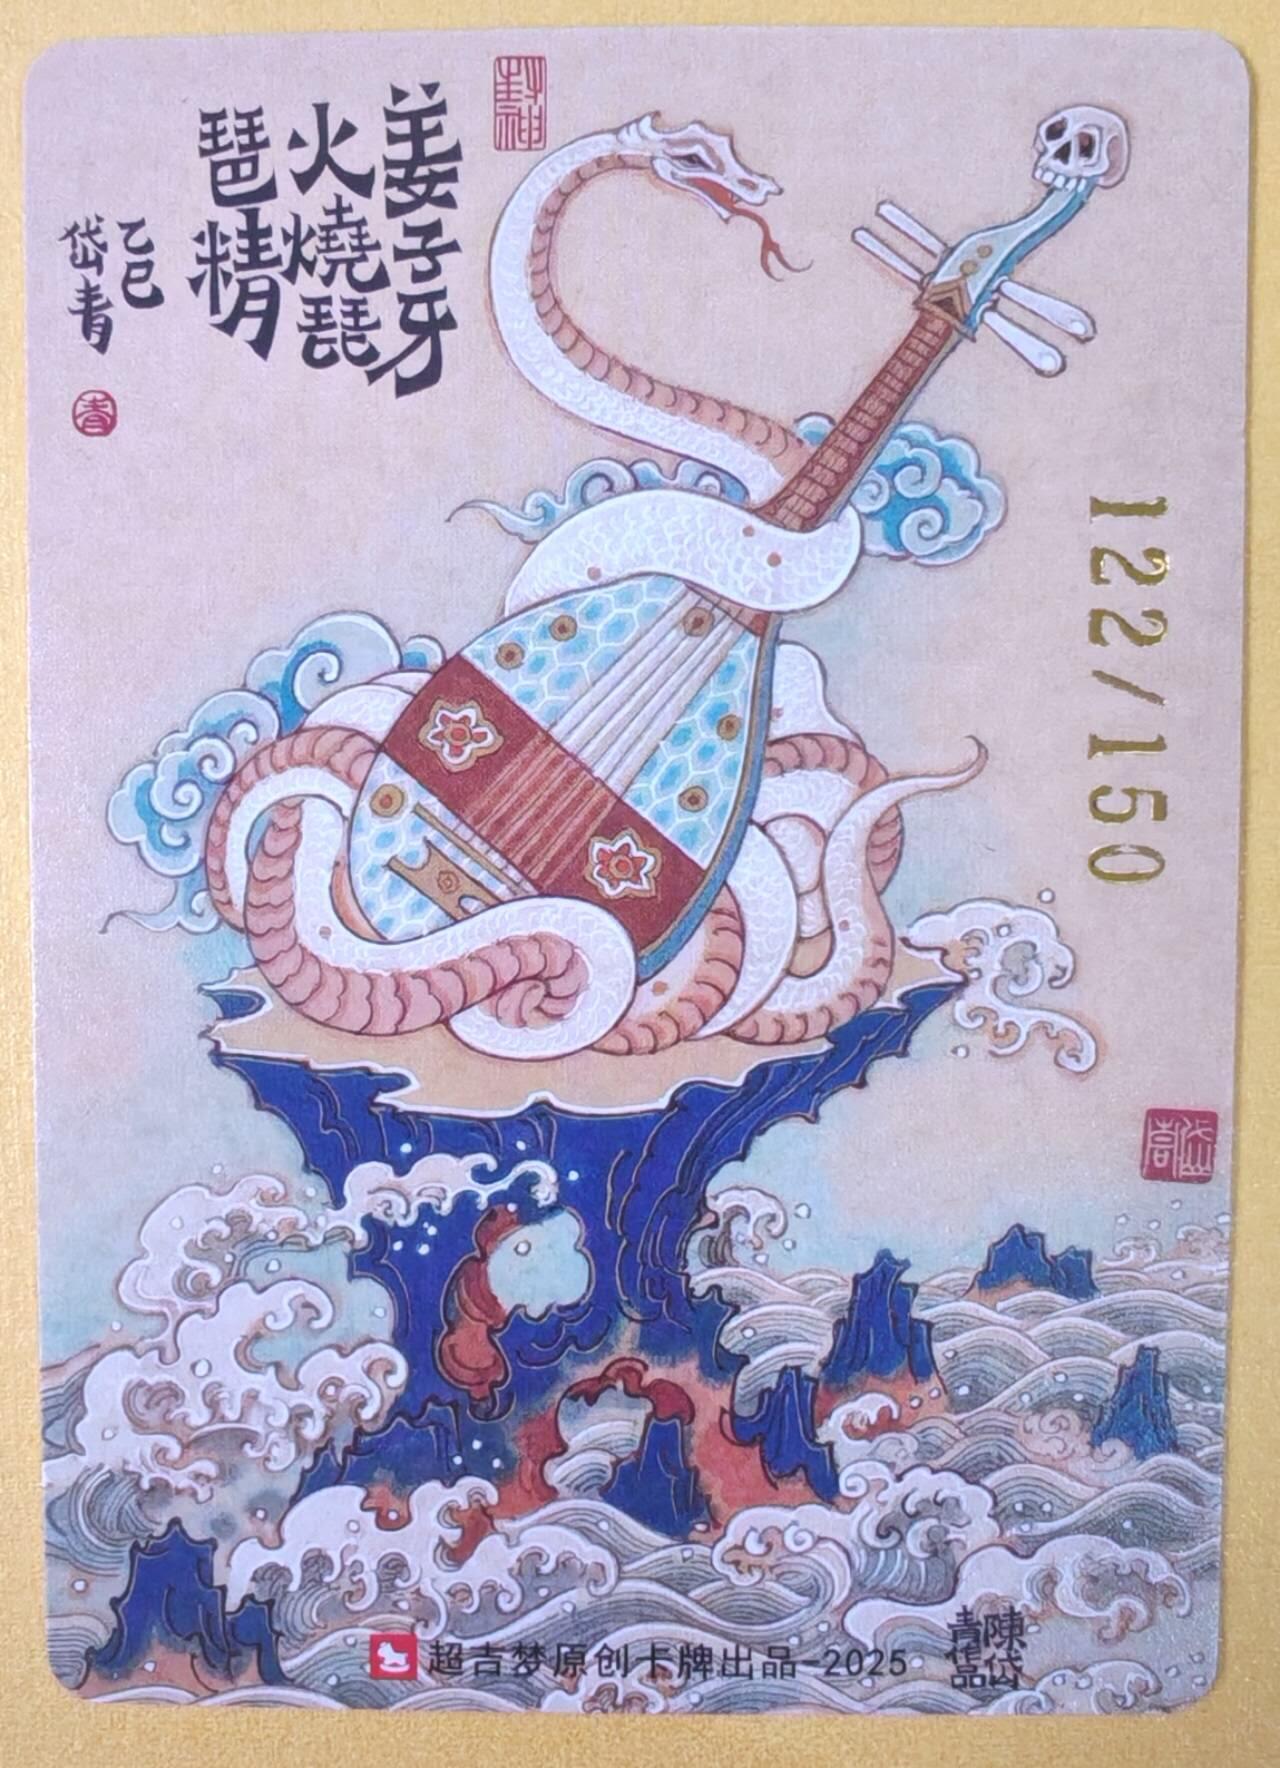 姜子牙
火燒琵
琶精
乙巳
岱青
封神
122/150
超吉梦原创卡牌出品-2025
陳岱
青作品